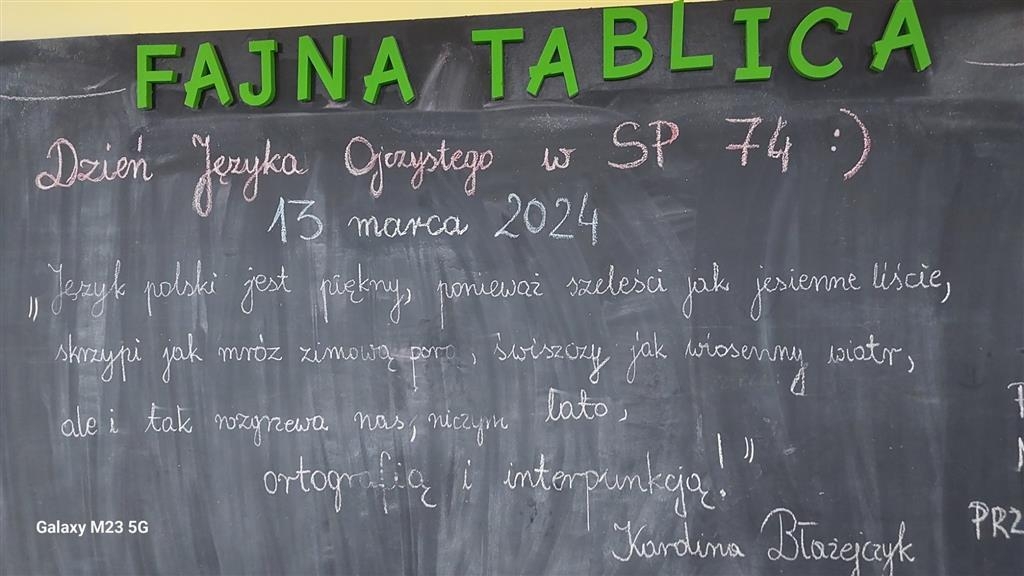 FAJNA TABLICA
Dzień Języka Ojczystego w SP 74 :)
13 marca 2024
„Język polski jest piękny, ponieważ szeleści jak jesienne liście,
skrzypi jak mróz zimową porą, świszczy jak wiosenny wiatr,
ale i tak rozgrzewa nas, niczym lato,
ortografią i interpunkcją!”
Karolina Błażejczyk
PRZ
Galaxy M23 5G